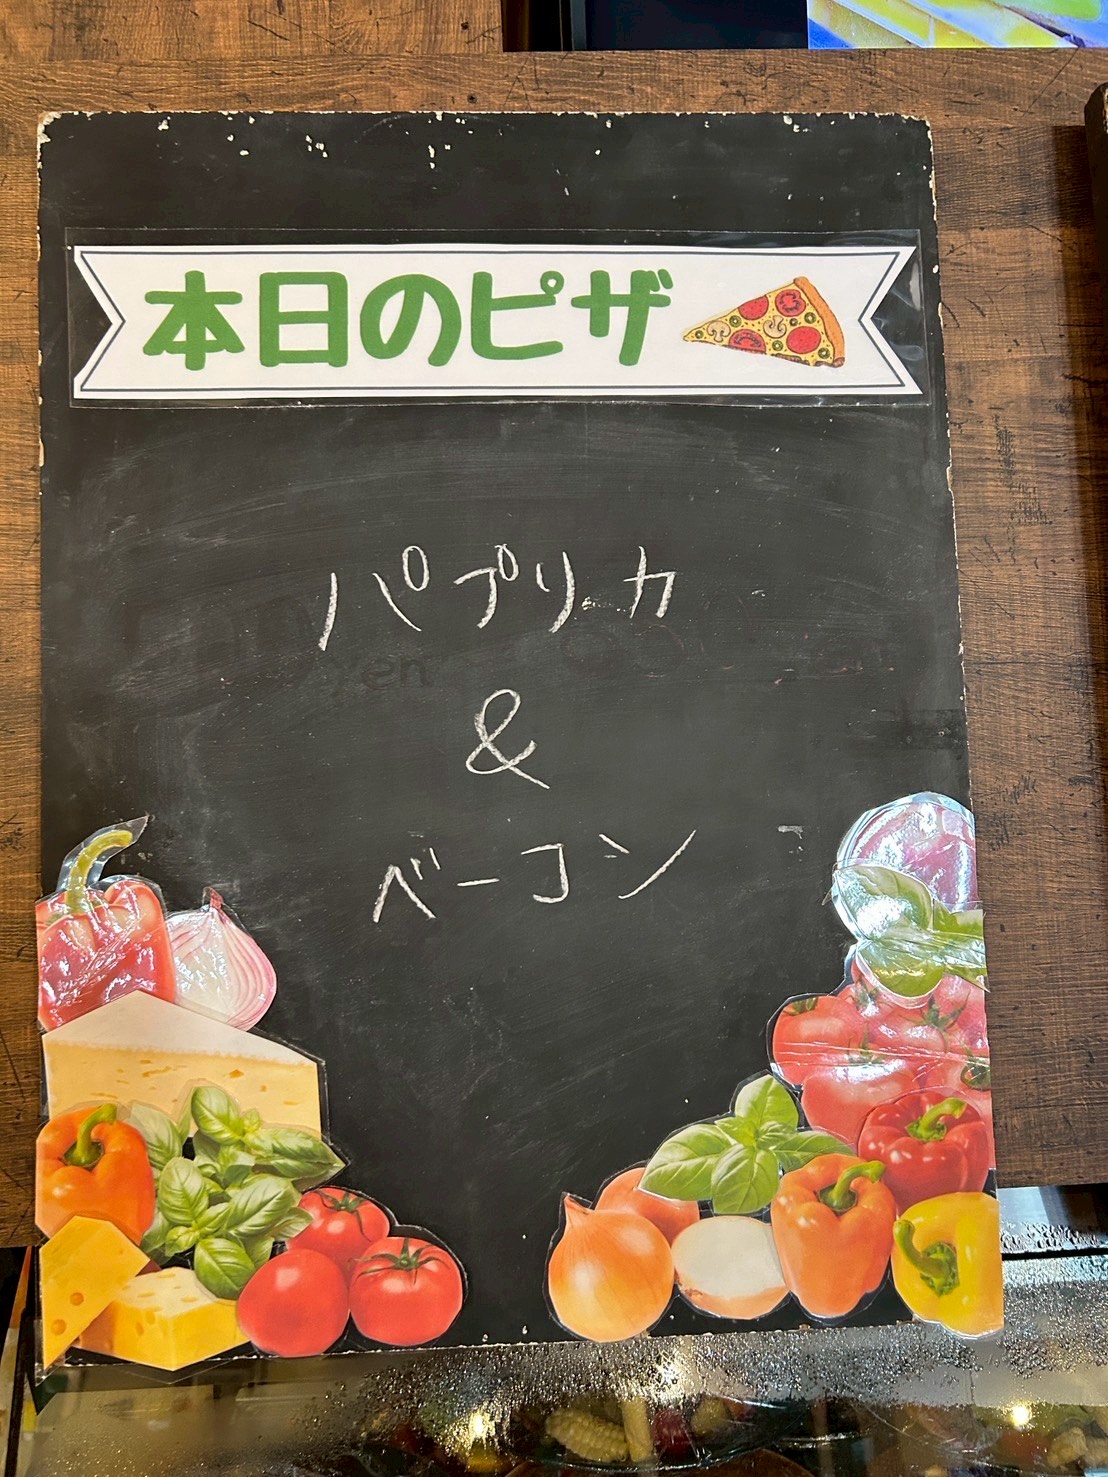 本日のピザ
パプリカ
&
ベーコン
yen